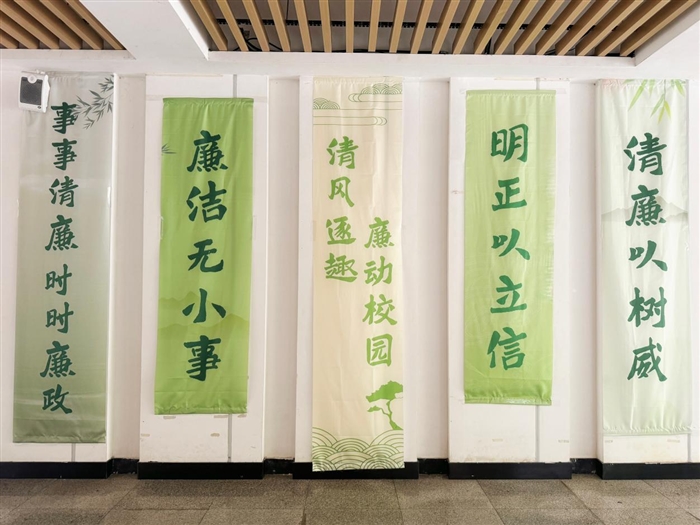 事事清廉时时廉政
廉洁无小事
清风逐趣
廉动校园
明正以立信
清廉以树威